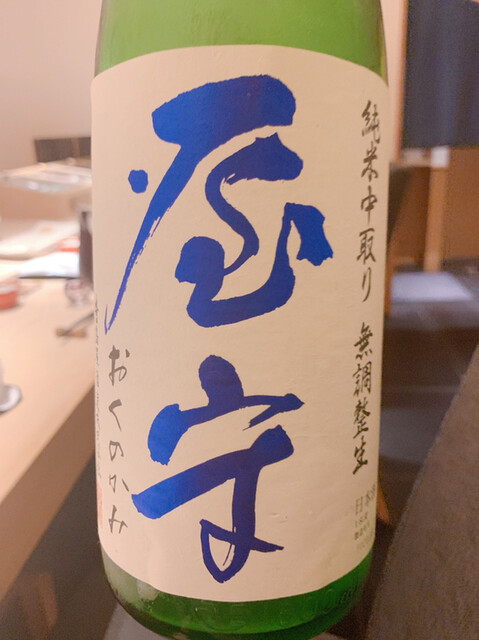 純米中取り 無調整生
屋守
おくのかみ